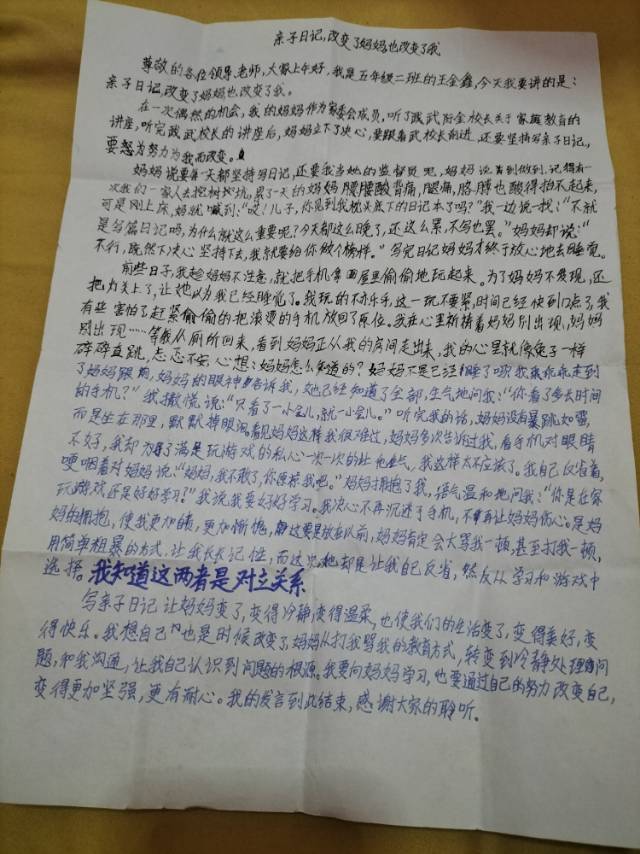 亲子日记,改变了妈妈,也改变了我
尊敬的各位领导、老师,大家上午好,我是五年级二班的王金鑫,今天我要讲的是:
亲子日记,改变了妈妈也改变了我。
在一次偶然的机会,我的妈妈作为家委会成员,听了武校长关于家庭教育的
讲座,听完武校长的讲座后,妈妈立下了决心,要跟着武校长前进,还要坚持写亲子日记,
要努力为我而改变。
妈妈说要每天都坚持写日记,还要我当她的监督员呢,妈妈说到做到。记得有一
次我们一家人去挖树坑,累了一天的妈妈腰酸背痛,腿痛,胳膊也酸得抬不起来,
可是刚上床,妈就喊到:“哎!儿子,你见到我枕头底下的日记本了吗?”我一边说一找:“不就
是写篇日记吗,为什么就这么重要呢?今天都这么晚了,还这么累,不写也罢。”妈妈却说:“
不行,既然下决心坚持下去,我就要给你做个榜样。”写完日记妈妈才终于放心地去睡觉。
前些日子,我趁妈妈不注意,就把手机拿回屋里偷偷地玩起来。为了妈妈不发现,还
把灯关上了,让她以为我已经睡觉了。我玩的不亦乐乎,这一玩不要紧,时间已经快到12点了,我
有些害怕了赶紧偷偷的把滚烫的手机放回了原位。我在心里祈祷着妈妈别出现,妈妈
别出现……等我从厕所回来,看到妈妈正从我的房间走出来,我的心里就像兔子一样
砰砰直跳,忐忑不安,心想:妈妈怎么知道的?妈妈不是已经睡了吗?我乖乖走到
了妈妈跟前,妈妈的眼神告诉我,她已经知道了全部,生气地问我:“你看了多长时间
的手机?”我撒慌说:“只看了一小会儿,就一小会儿。”听完我的话,妈妈没有暴跳如雷,
而是坐在那里,默默掉眼泪。看见妈妈这样我很难过,妈妈多次告诉过我,看手机对眼睛
不好,我却为了满足玩游戏的私心一次一次的让他生气,我这样太不应该了。我自己反省着,
哽咽着对妈妈说:“妈妈,我不敢了,你原谅我吧。”妈妈拥抱了我,语气温和地问我:“你是在家
玩游戏还是好好学习?”我说我要好好学习。我决心不再沉迷于手机,不再让妈妈伤心。是妈
妈的拥抱,使我更加自责,更加惭愧,这要是放在以前,妈妈肯定会大骂我一顿,甚至打我一顿,
用简单粗暴的方式,让我长长记性,而这次她却是让我自己反省,然反从学习和游戏中
选择。我知道这两者是对立关系
写亲子日记让妈妈变了,变得冷静变得温柔,也使我们的生活变了,变得美好,变
得快乐。我想自己也是时候改变了,妈妈从打我骂我的教育方式,转变到冷静处理问
题,和我沟通,让我自己认识到问题的根源。我要向妈妈学习,也要通过自己的努力改变自己,
变得更加坚强,更有耐心。我的发言到此结束,感谢大家的聆听。